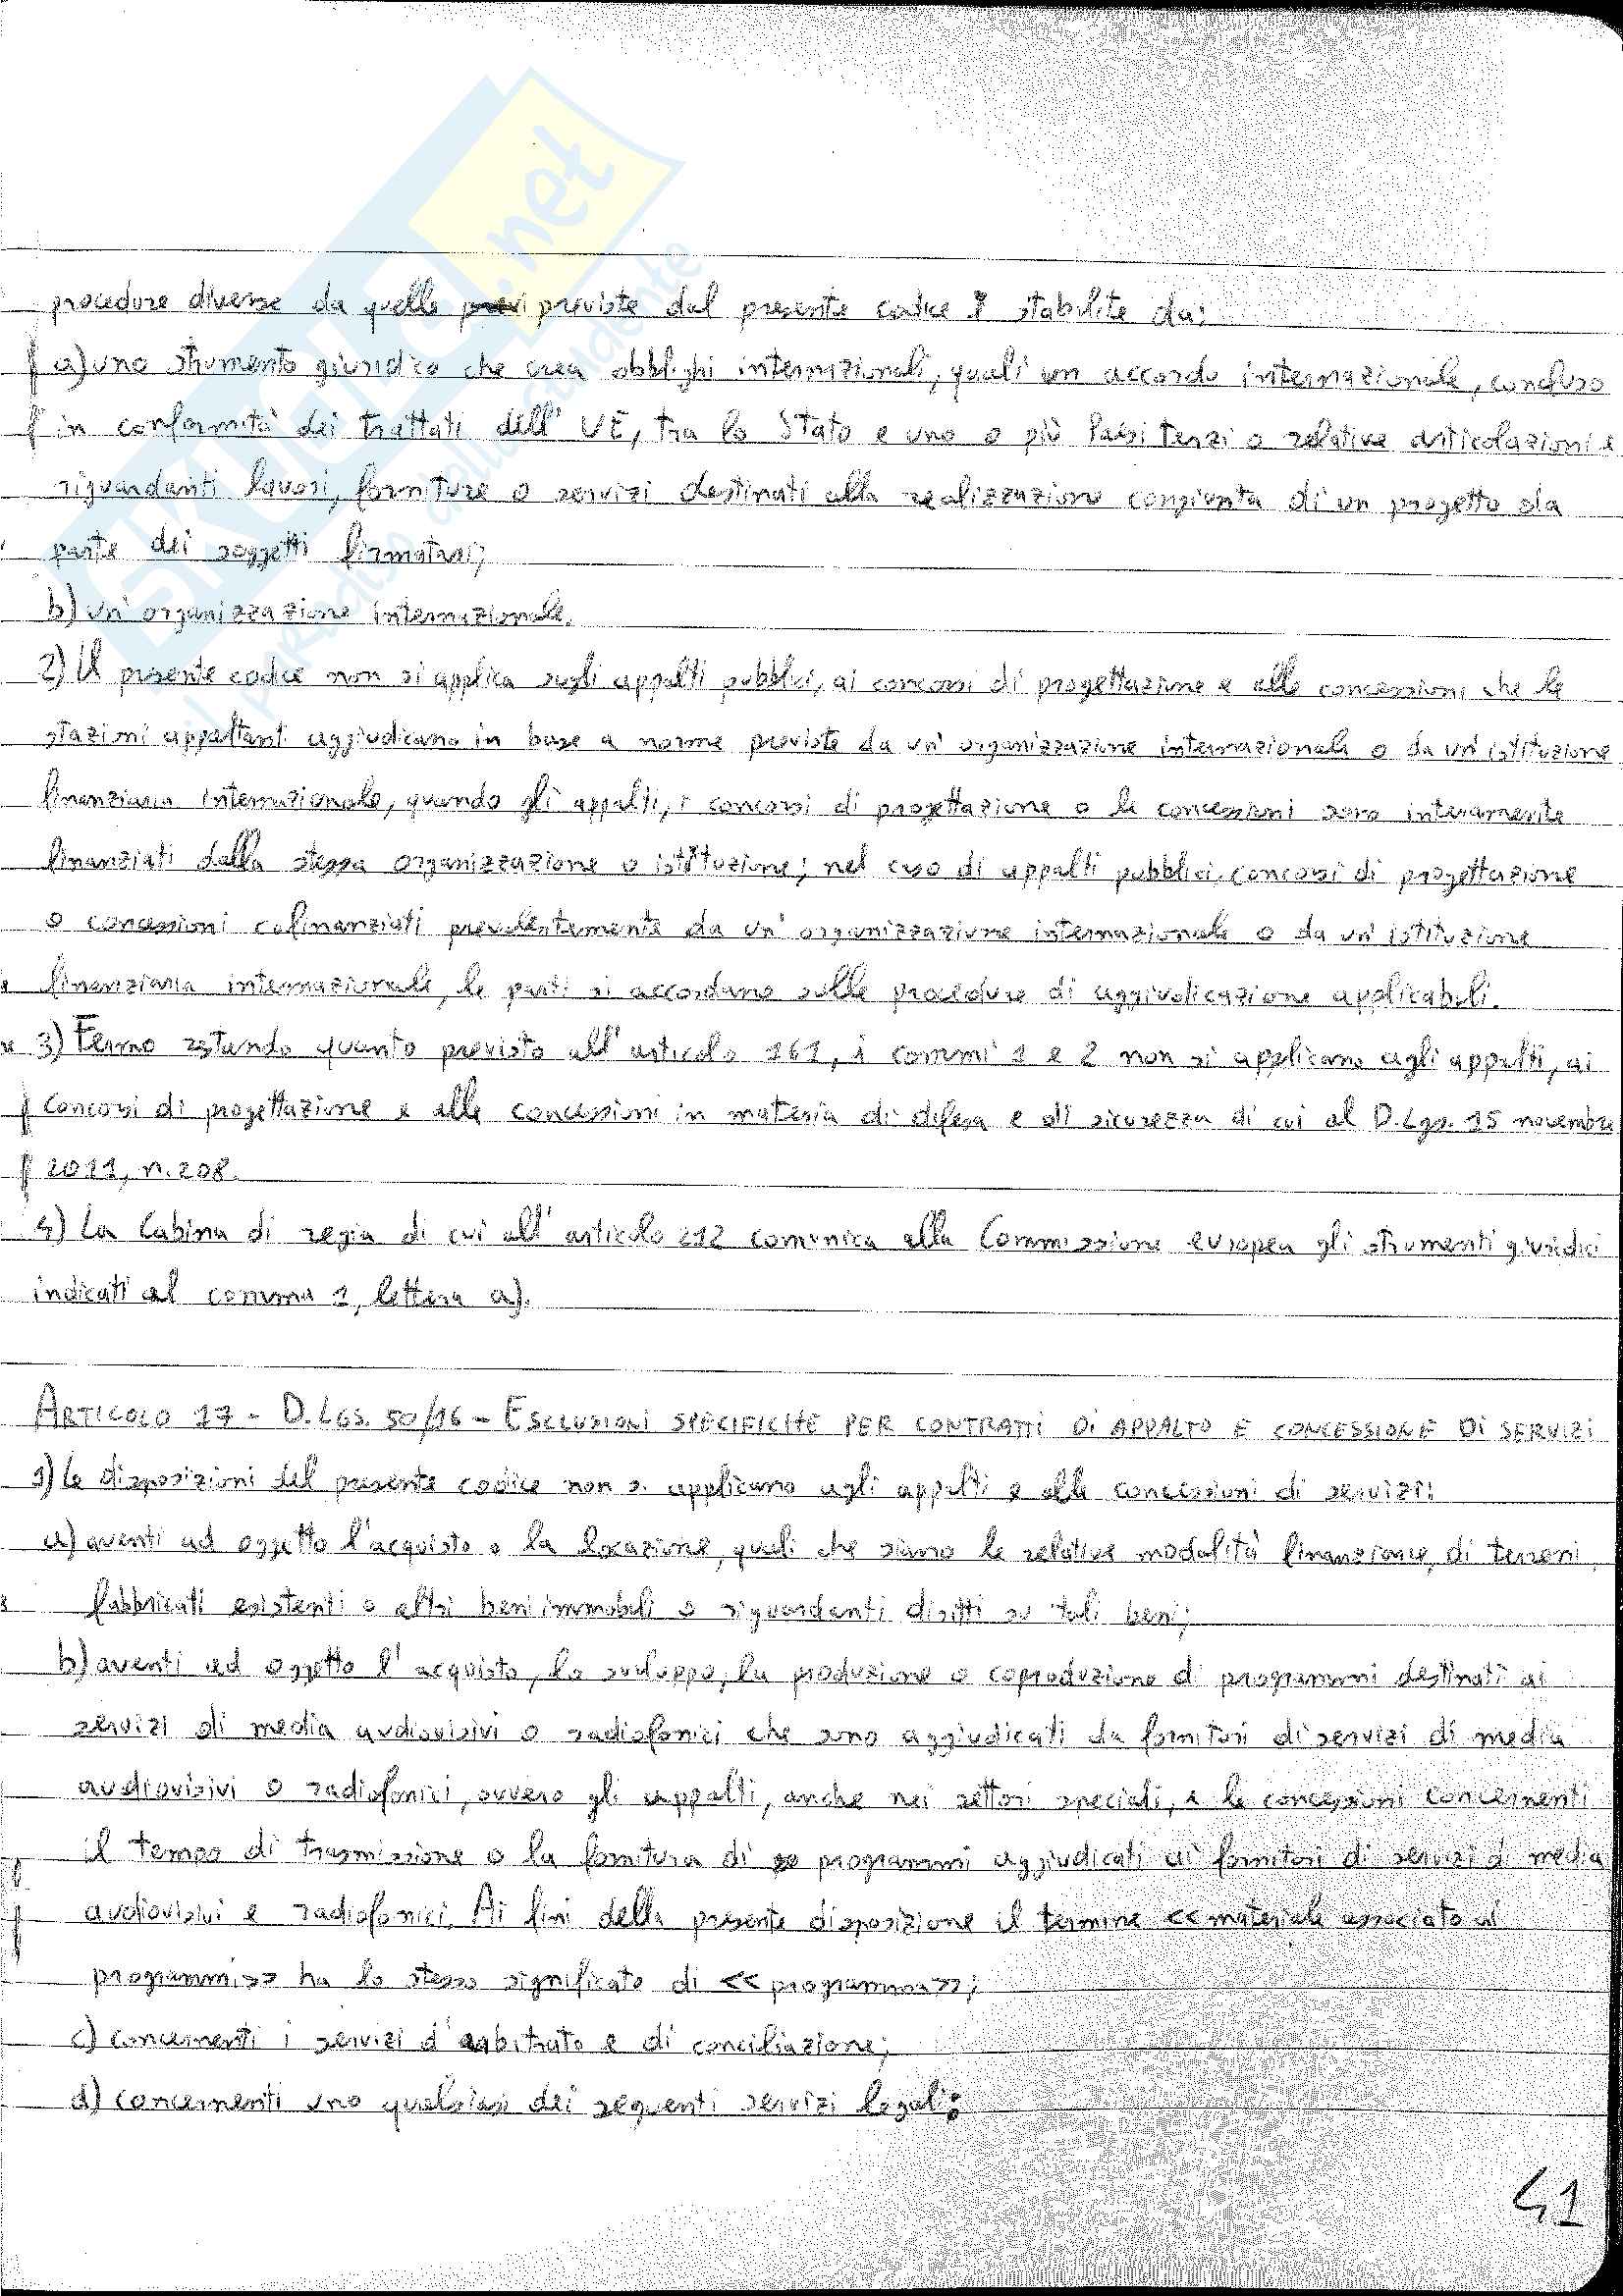 procedure diverse da quelle previ previste dal presente codice e stabilite da:
a) uno strumento giuridico che crea obblighi internazionali, quali un accordo internazionale, concluso
in conformità dei trattati dell' UE, tra lo Stato e uno o più Paesi terzi o relative articolazioni e
riguardanti lavori, forniture o servizi destinati alla realizzazione congiunta di un progetto da
parte dei soggetti firmatari;
b) un' organizzazione internazionale.
2) Il presente codice non si applica agli appalti pubblici, ai concorsi di progettazione e alle concessioni che le
stazioni appaltanti aggiudicano in base a norme previste da un' organizzazione internazionale o da un' istituzione
finanziaria internazionale, quando gli appalti, i concorsi di progettazione o le concessioni sono interamente
finanziati dalla stessa organizzazione o istituzione; nel caso di appalti pubblici, concorsi di progettazione
o concessioni cofinanziati prevalentemente da un' organizzazione internazionale o da un' istituzione
finanziaria internazionale, le parti si accordano sulle procedure di aggiudicazione applicabili.
3) Fermo restando quanto previsto all' articolo 161, i commi 1 e 2 non si applicano agli appalti, ai
concorsi di progettazione e alle concessioni in materia di difesa e di sicurezza di cui al D.Lgs. 15 novembre
2011, n. 208.
4) La Cabina di regia di cui all' articolo 212 comunica alla Commissione europea gli strumenti giuridici
indicati al comma 1, lettera a).
ARTICOLO 17 - D.LGS. 50/16 - ESCLUSIONI SPECIFICHE PER CONTRATTI DI APPALTO E CONCESSIONE DI SERVIZI
1) Le disposizioni del presente codice non si applicano agli appalti e alle concessioni di servizi:
a) aventi ad oggetto l'acquisto o la locazione, quali che siano le relative modalità finanziarie, di terreni,
fabbricati esistenti o altri beni immobili o riguardanti diritti su tali beni;
b) aventi ad oggetto l' acquisto, lo sviluppo, la produzione o coproduzione di programmi destinati ai
servizi di media audiovisivi o radiofonici che sono aggiudicati da fornitori di servizi di media
audiovisivi o radiofonici, ovvero gli appalti, anche nei settori speciali, e le concessioni concernenti
il tempo di trasmissione o la fornitura di programmi aggiudicati ai fornitori di servizi di media
audiovisivi e radiofonici. Ai fini della presente disposizione il termine <<materiale associato ai
programmi>> ha lo stesso significato di <<programma>>;
c) concernenti i servizi d'arbitrato e di conciliazione;
d) concernenti uno qualsiasi dei seguenti servizi legali:
41